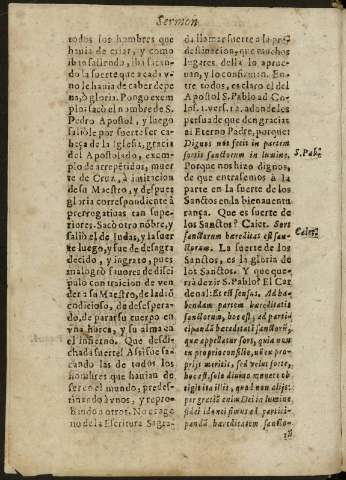 Sermon
todos los hombres que
hauia de criar, y como
iban saliendo, iba sacan
do la suerte que a cada v-
no le hauia de caber de pe
na, ò gloria. Pongo exem
plo: sacò el nombre de S.
Pedro Apostol, y luego
saliòle por suerte ser ca-
beça de la Iglesia, gracia
del Apostolado, exem-
plo de arrepẽtidos, muer
te de Cruz, à imitacion
de su Maestro, y despues
gloria correspondiente à
prerrogatiuas tan supe-
riores. Sacò otro nõbre, y
saliò el de Judas, y la suer
te luego, y fue de desagra
decido, y ingrato, pues
malogrò fauores de disci
pulo con traicion de ven
der à su Maestro, de ladrõ
codicioso, de desespera-
do, de parar su cuerpo en
vna horca, y su alma en
el infierno. Que desdi-
chada suerte! Assi fue sa-
cando las de todos los
hombres que hauian de
ser en el mundo, predes-
tinando à vnos, y repro-
bando a otros. No es age
no de la Escritura Sagra-
da llamar suerte a la pre-
destinacion, que muchos
lugares della lo aprue-
uan, y lo confirman. En
tre todos, es claro el del
Apostol S. Pablo ad Co-
los. 1. vers. 12. adonde les
persuade que den gracias
al Eterno Padre, porque:
Dignos nos fecit in partem
sortis sanctorum in lumine.
Porque nos hizo dignos,
de que entrasemos à la
parte en la suerte de los
Santos en la bienauentu
rança. Que es suerte de
los Santos? Caiet. Sors
sanctorum hæreditas est san-
ctorum. La suerte de los
Santos, es la gloria de
los Santos. Y que que-
rrà dezir S. Pablo? El Car
denal: Et est sensus. Ad ha-
bendam partem hæreditatis
sanctorum, hoc est, ad parti-
cipandã hæreditatẽ sanctorũ,
que appellatur sors, quia non
ex proprio consilio, nec ex pro-
prijs meritis, sed velut sorte,
hoc est, solo diuino munere ob
tigit ita illis, quod non alijs:
per gratiã enim Dei in lumine
fidei idonei fimus ad partici-
pandam hæreditatem sancto-
S. Pabº
Caietº